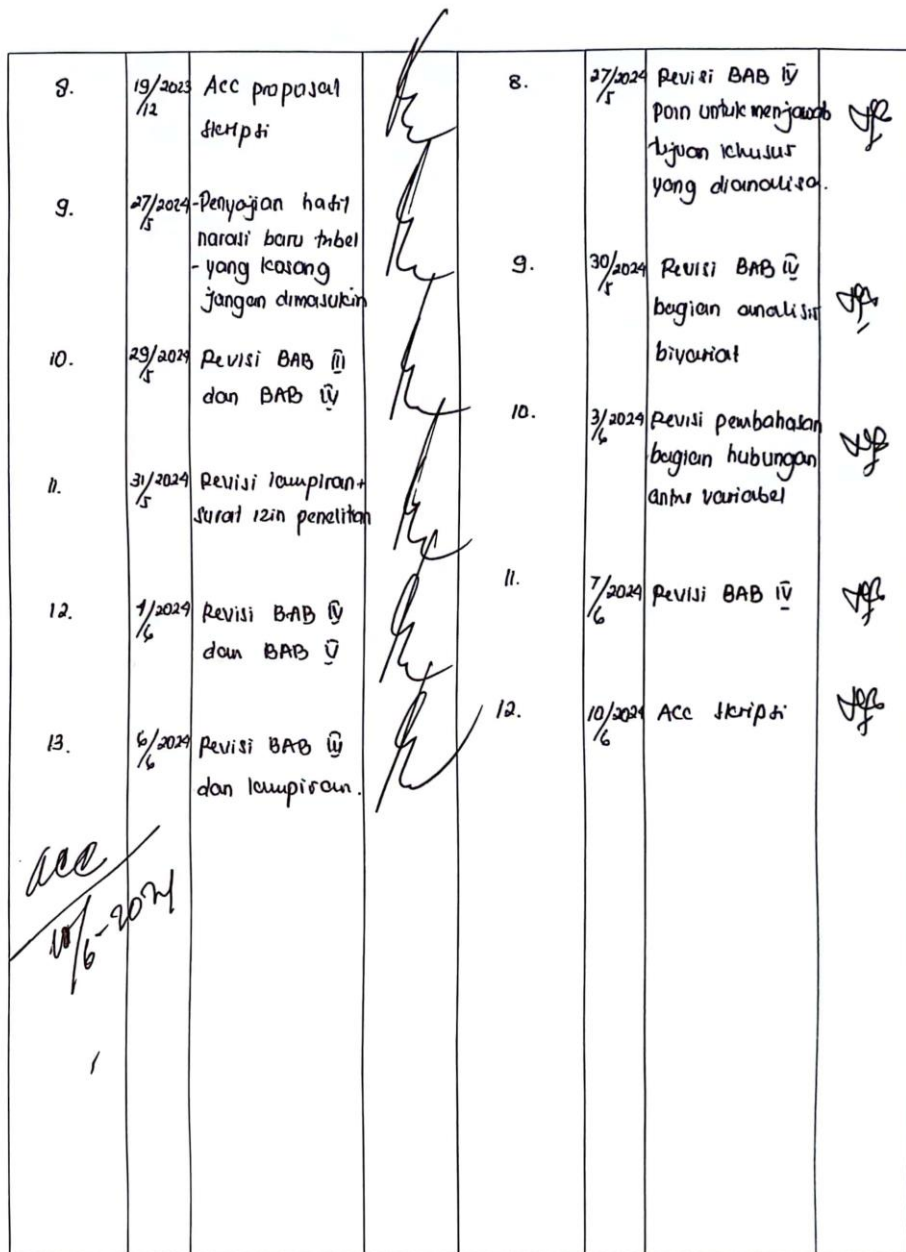 8.
19/2023
12
Acc proposal
skripsi
9.
27/2024
5
-Penyajian hasil
narasi baru tabel
- yang kosong
jangan dimasukin
10.
29/2024
5
Revisi BAB III
dan BAB IV
11.
31/2024
5
Revisi lampiran+
surat izin penelitian
12.
4/2024
6
Revisi BAB IV
dan BAB V
13.
6/2024
6
Revisi BAB IV
dan lampiran.
acc
10/6-2024
8.
27/2024
5
Revisi BAB IV
poin untuk menjawab
tujuan khusus
yang dianalisa.
9.
30/2024
5
Revisi BAB IV
bagian analisis
bivariat
10.
3/2024
6
Revisi pembahasan
bagian hubungan
antar variabel
11.
7/2024
6
Revisi BAB IV
12.
10/2024
6
ACC skripsi